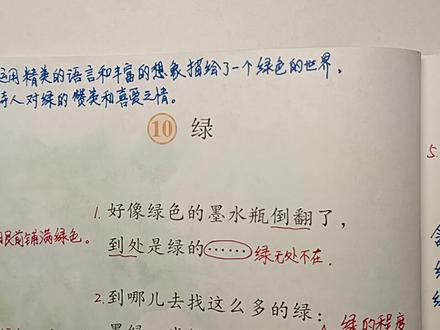 运用精美的语言和丰富的想象描绘了一个绿色的世界，
诗人对绿的赞美和喜爱之情。
10 绿
1. 好像绿色的墨水瓶倒翻了，
眼前铺满绿色。
到处是绿的…… 绿无处不在.
2. 到哪儿去找这么多的绿：
绿的程度
5.